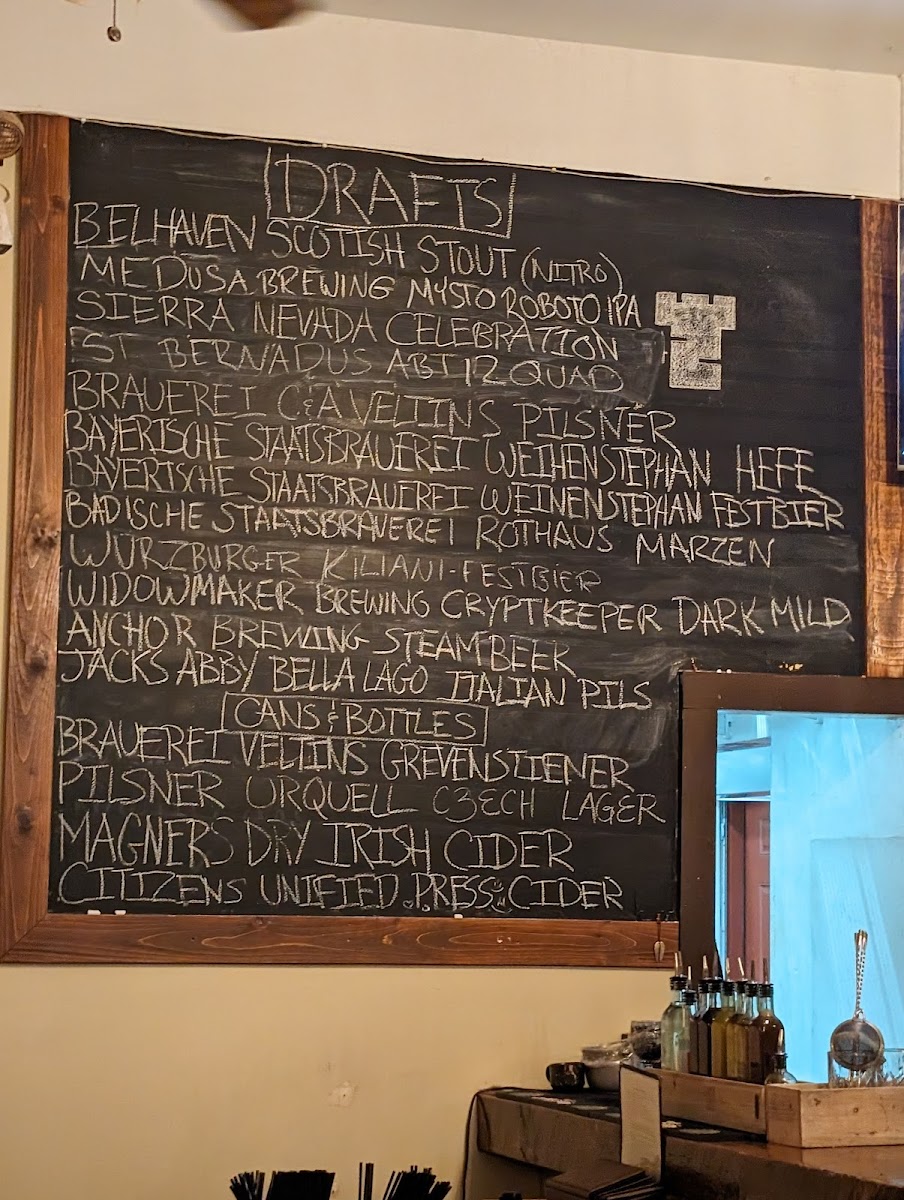 DRAFTS
BELHAVEN SCOTISH STOUT (NITRO)
MEDUSA BREWING MYSTO ROBOTO IPA
SIERRA NEVADA CELEBRATION
ST BERNADUS ABT 12 QUAD
BRAUEREI C&A VELTINS PILSNER
BAYERISCHE STAATSBRAUEREI WEIHENSTEPHAN HEFE
BAYERISCHE STAATSBRAUEREI WEINENSTEPHAN FESTBIER
BADISCHE STAATSBRAUEREI ROTHAUS MARZEN
WURZBURGER KILIANI-FESTBIER
WIDOWMAKER BREWING CRYPTKEEPER DARK MILD
ANCHOR BREWING STEAM BEER
JACKS ABBY BELLA LAGO ITALIAN PILS
CANS & BOTTLES
BRAUEREI VELTINS GREVENSTIENER
PILSNER URQUELL CZECH LAGER
MAGNERS DRY IRISH CIDER
CITIZENS UNIFIED PRESS CIDER